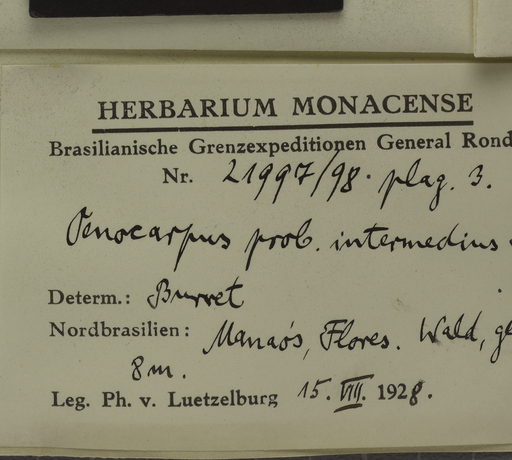 HERBARIUM MONACENSE
Brasilianische Grenzexpeditionen General Rond
Nr. 21997/98. plag. 3.
Oenocarpus prob. intermedius
Determ.: Burret
Nordbrasilien: Manaós, Flores. Wald, ge
8 m.
Leg. Ph. v. Luetzelburg 15. VIII. 1928.